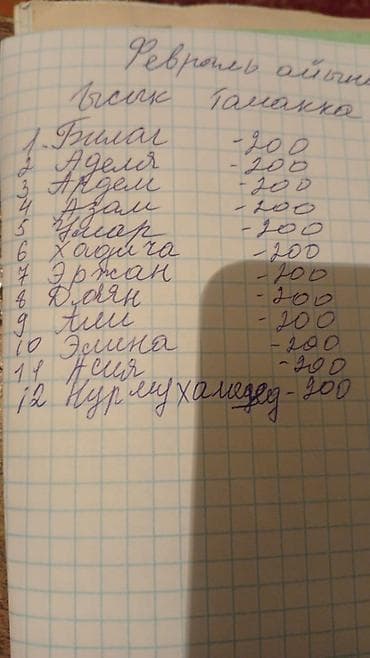 Февраль айына
Ысык Тамакка
1. Билал -200
2 Аделя -200
3 Ардем -200
4 Азам -200
5 Умар -200
6 Хадича -200
7 Эржан -200
8 Даян -200
9 Али -200
10 Элина -200
11 Асия -200
12 Нурмухаммед -200